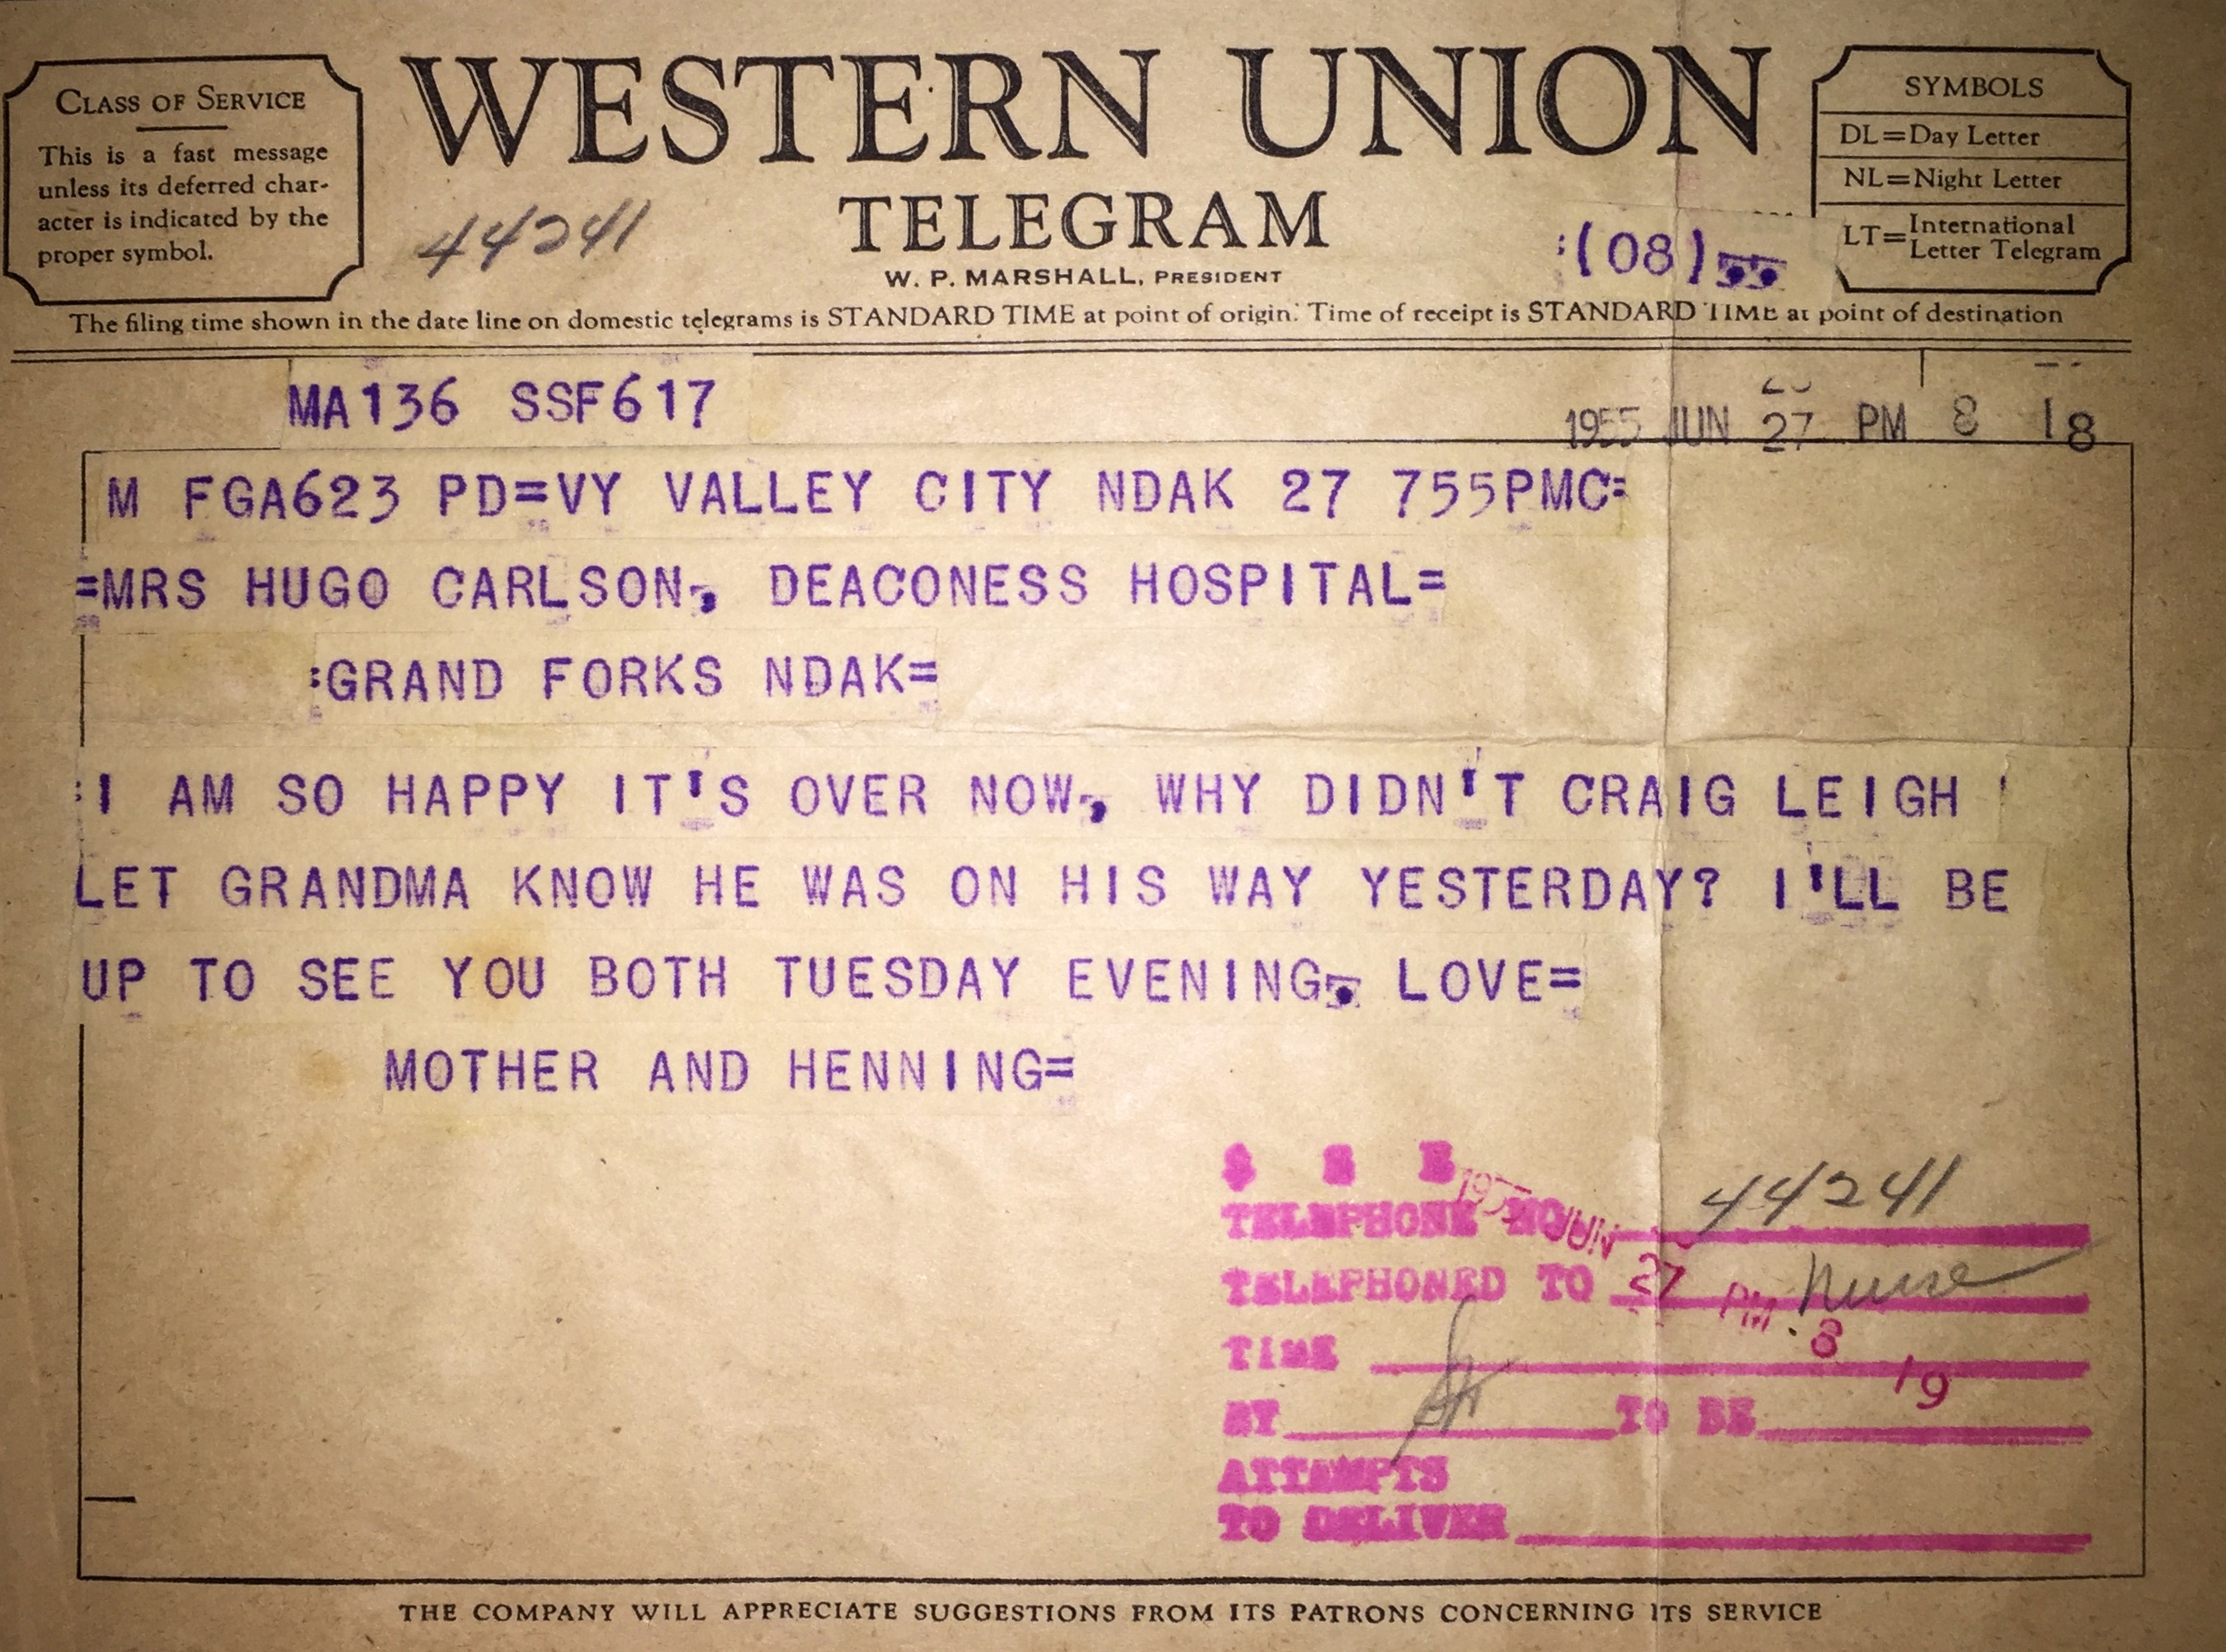 CLASS OF SERVICE
This is a fast message
unless its deferred char-
acter is indicated by the
proper symbol.
WESTERN UNION
TELEGRAM
W. P. MARSHALL, PRESIDENT
44241
:(08)..
SYMBOLS
DL=Day Letter
NL=Night Letter
LT=International
Letter Telegram
The filing time shown in the date line on domestic telegrams is STANDARD TIME at point of origin. Time of receipt is STANDARD TIME at point of destination
MA136 SSF617
1955 JUN 27 PM 8 18
M FGA623 PD=VY VALLEY CITY NDAK 27 755PMC=
=MRS HUGO CARLSON, DEACONESS HOSPITAL=
:GRAND FORKS NDAK=
:I AM SO HAPPY IT'S OVER NOW, WHY DIDN'T CRAIG LEIGH
LET GRANDMA KNOW HE WAS ON HIS WAY YESTERDAY? I'LL BE
UP TO SEE YOU BOTH TUESDAY EVENING. LOVE=
MOTHER AND HENNING=
TELEPHONE NO. 44241
TELEPHONED TO Nurse
1955 JUN 27 PM 8 19
TIME
BY TO BE
ATTEMPTS
TO DELIVER
THE COMPANY WILL APPRECIATE SUGGESTIONS FROM ITS PATRONS CONCERNING ITS SERVICE